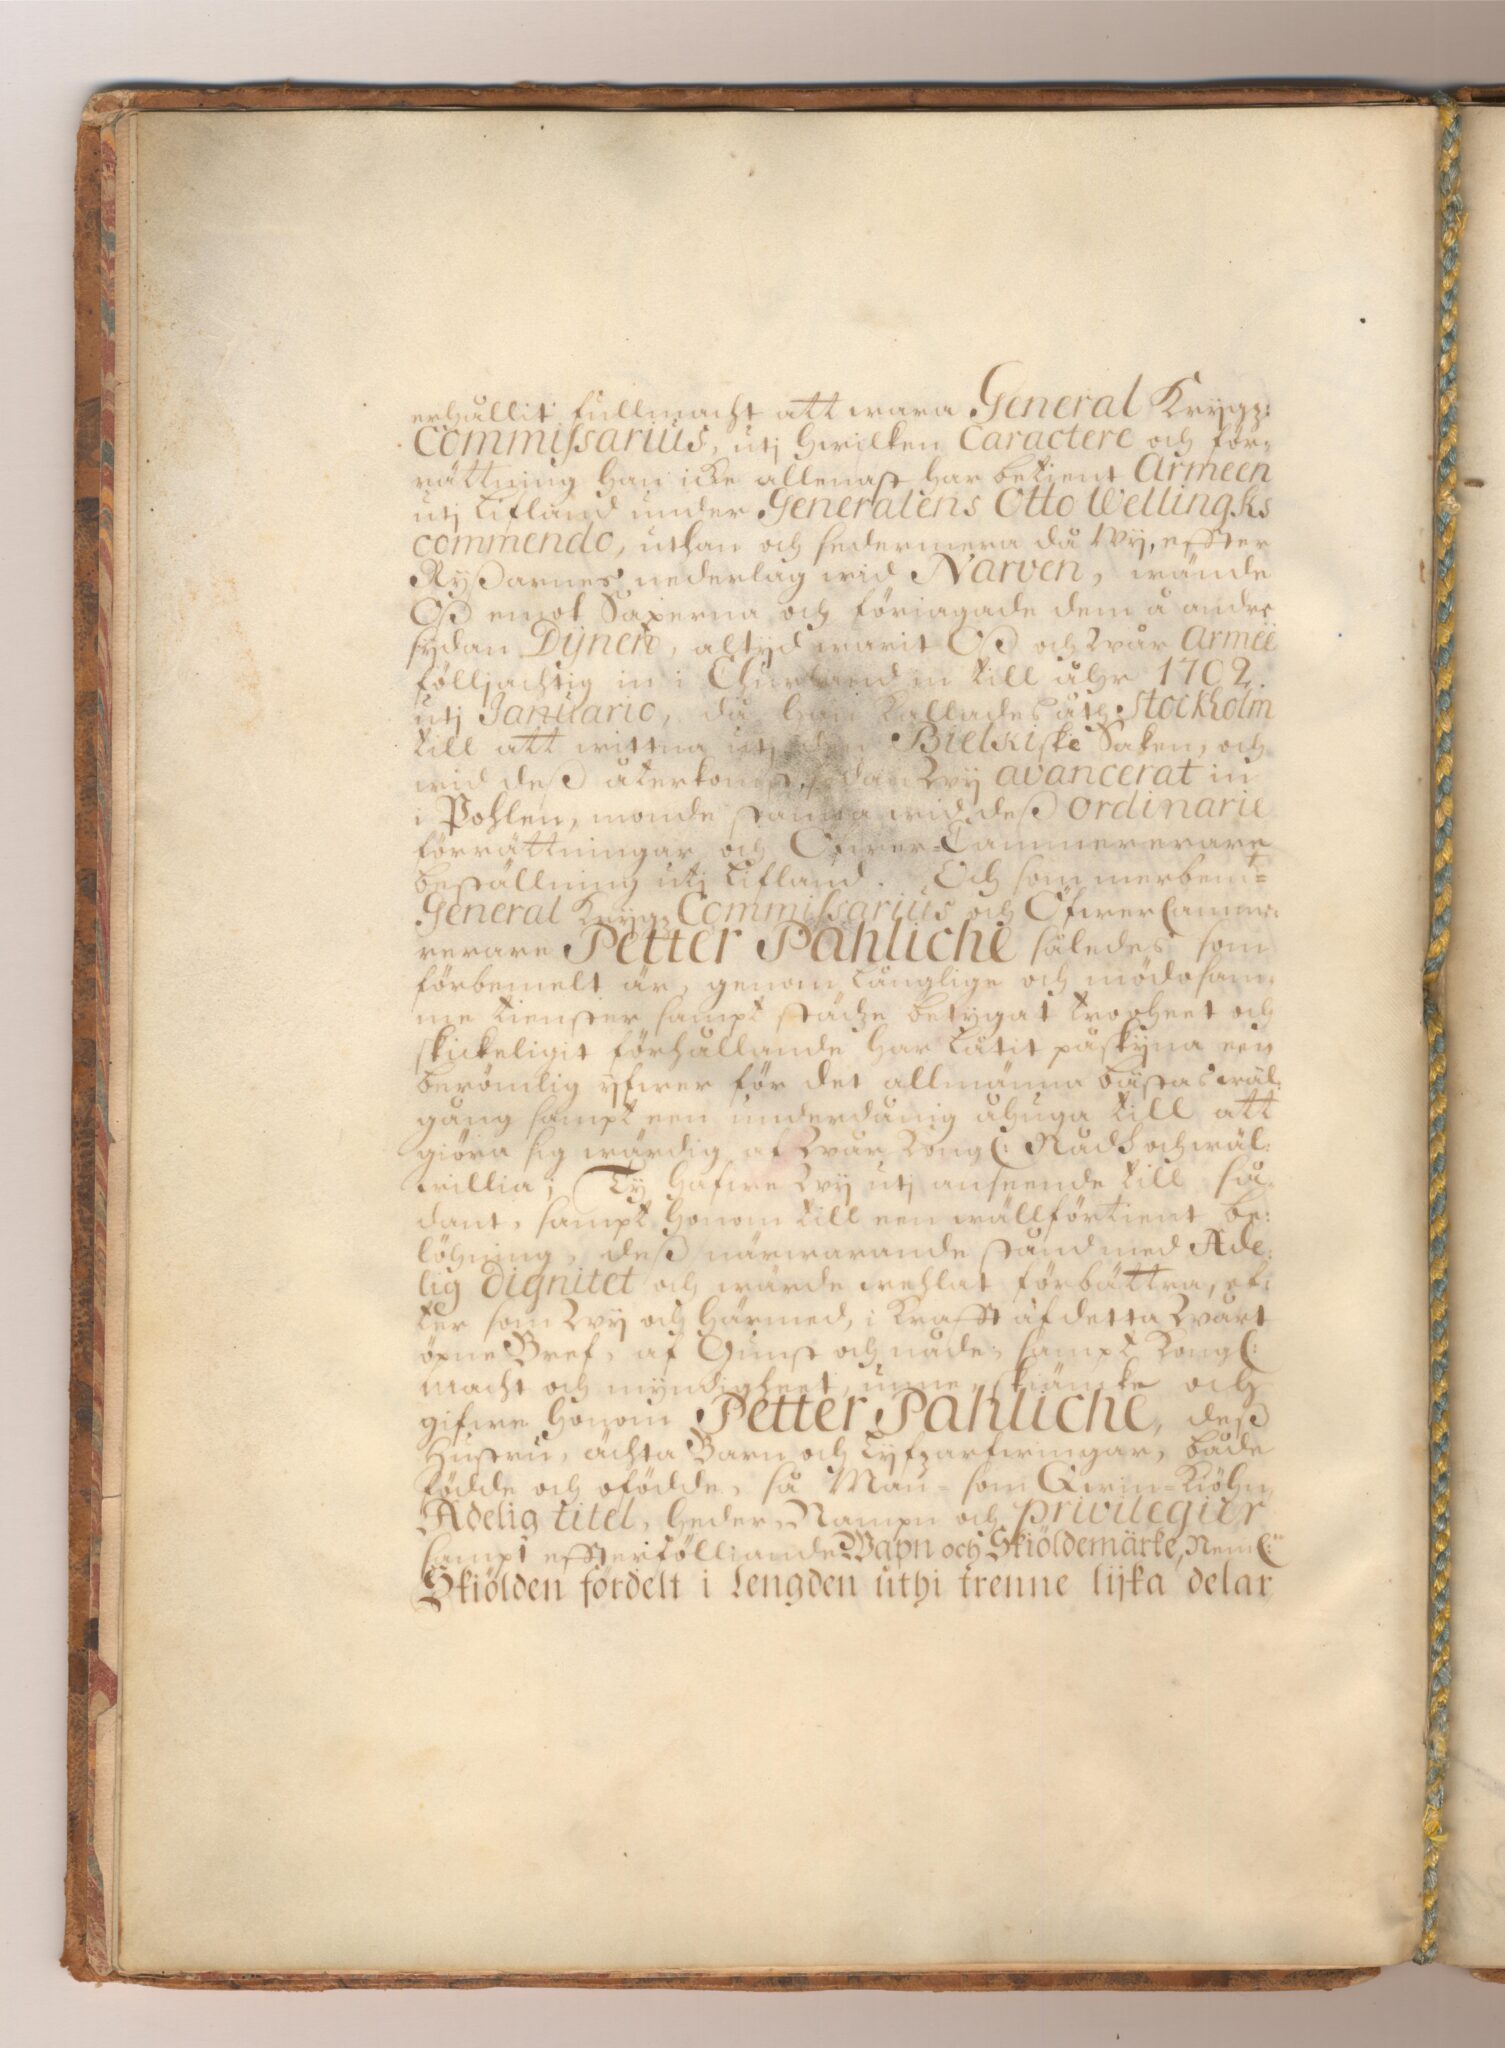 erhullit fullmacht att wara General Krygz:
Commissarius, utj hwilken Caractere och för-
rättning han icke allenast har betient Armeen
utj Lifland under Generalens Otto Wellingks
commendo, uthan och sedermera då Wy, effter
Ryßarnes nederlag wid Narven, wände
Oß emot Saxerna och föriagade dem å andre
sydan Dÿnen, altÿd warit Oß och Wår Armee
fölljachtig in i Churland in till åhr 1702.
utj Januario, då han kallades åth Stockholm
till att wittna utj den Bielkiske Saken, och
wid deß återkomst, sedan Wij avancerat in
i Pohlen, monde stanna wid deß ordinarie
förrättningar och Öfwer-Cammererare
beställning utj Lifland. Och som merbem:te
General Krygz Commissarius och Öfwer Camme-
rerare Petter Pahliche således som
förbemelt är, genom långlige och mödosam-
me tienster sampt städze betygat trooheet och
skickeligit förhållande har låtit påskÿna een
berömlig ÿfwer för det allmänna bästas wäl-
gång sampt een underdånig åhuga till att
giöra sig wärdig af Wår Kongl: Nåd och wäl-
willia; Ty hafwe Wij utj anseende till så-
dant, sampt honom till een wällförtient be-
löhning, deß närwarande stånd med Ade-
lig dignitet och wärde wehlat förbättra, ef-
ter som Wij och härmed, i krafft af detta Wårt
öpne Bref, af Gunst och nåde, sampt Kongl:
macht och myndigheet, unne, skiäncke och
gifwe honom Petter Pahliche, deß
Hustru, ächta Barn och Lyfzarfwingar, både
födde och ofödde, så Man- som Qwin-Kiöhn,
Adelig titel, heder, Nampn och privilegier
sampt effterfölliande Wapn och Skiöldemärke, Neml:
Skiölden fördelt i lengden uthi trenne lijka delar